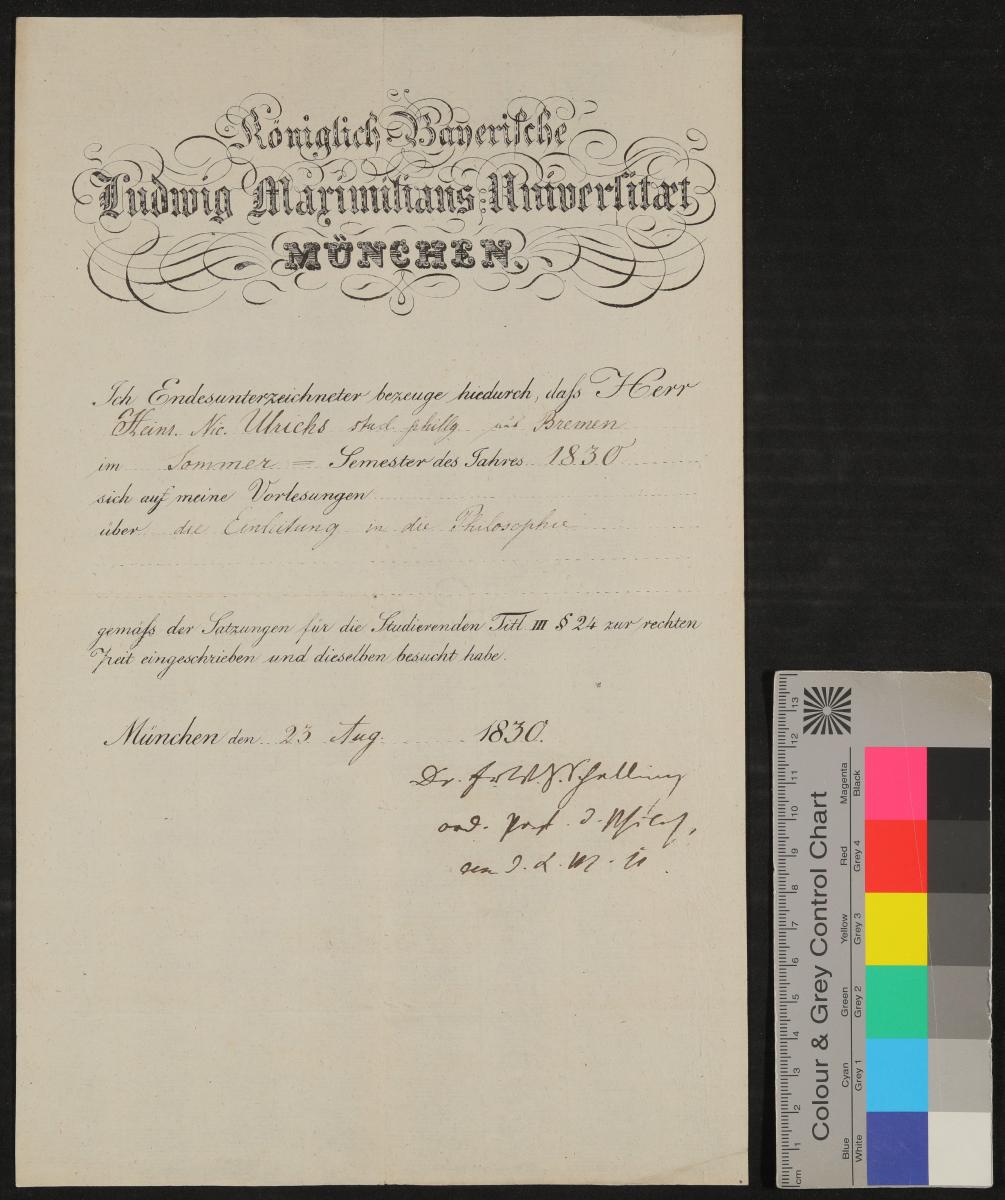 Königlich-Bayerische
Ludwig Maximilians-Universitæt
MÜNCHEN.
Ich Endesunterzeichneter bezeuge hiedurch, daſs Herr
Heinr. Nic. Ulrichs stud. philg. aus Bremen
im Sommer = Semester des Jahres 1830
sich auf meine Vorlesungen
über die Einleitung in die Philosophie
gemäſs der Satzungen für die Studierenden Titl. III § 24 zur rechten
Zeit eingeschrieben und dieselben besucht habe.
München den 23 Aug. 1830.
Dr. Fr. W. J. Schelling
ord. Prof. d. Philos.
an d. L. M. U.
Colour & Grey Control Chart
Blue Cyan Green Yellow Red Magenta
White Grey 1 Grey 2 Grey 3 Grey 4 Black
cm 1 2 3 4 5 6 7 8 9 10 11 12 13